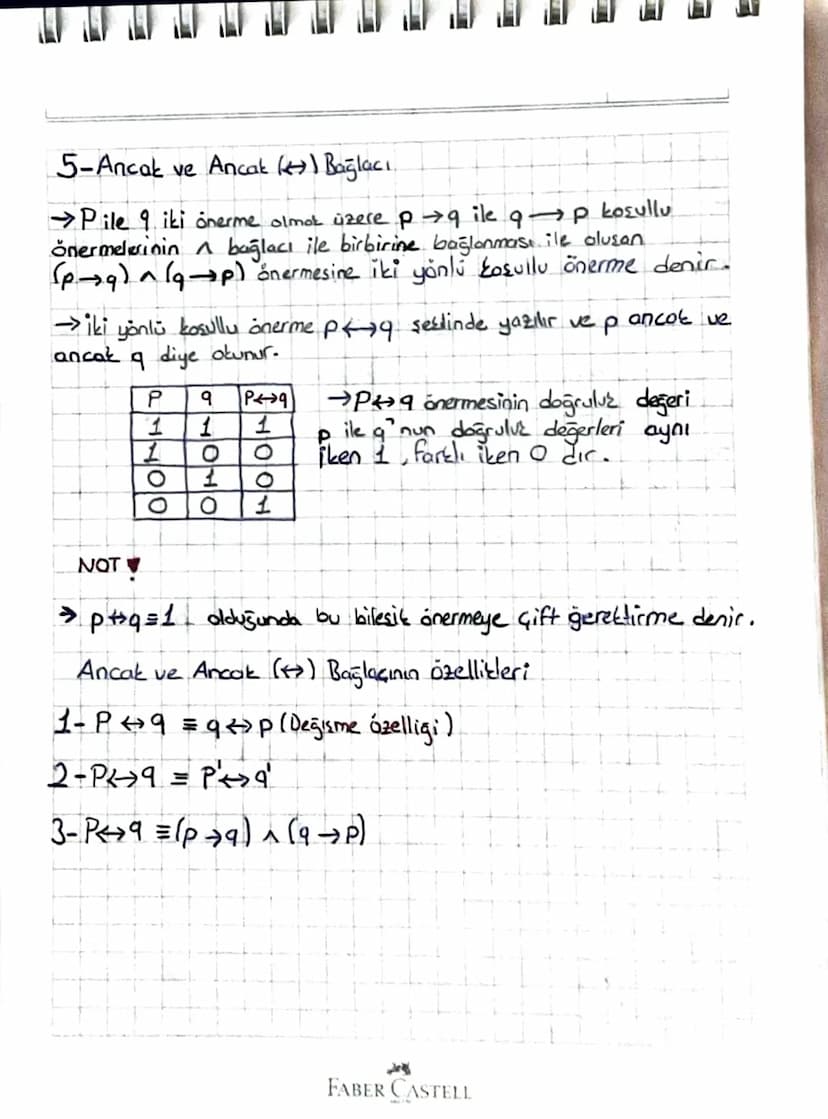 5-Ancak ve Ancak (↔) Bağlacı
→P ile q iki önerme olmak üzere p →q ile q → p koşullu
önermelerinin ∧ bağlacı ile birbirine bağlanması ile oluşan
(p→q) ∧ (q→p) önermesine iki yönlü koşullu önerme denir.
→iki yönlü koşullu önerme p↔q şeklinde yazılır ve p ancak ve
ancak q diye okunur.
P q P↔q
1 1 1
1 0 0
0 1 0
0 0 1
→P↔q önermesinin doğruluk değeri
p ile q'nun doğruluk değerleri aynı
iken 1, farklı iken 0 dır.
NOT !
→ p↔q≡1 olduğunda bu bileşik önermeye çift ğerektirme denir.
Ancak ve Ancak (↔) Bağlaçının özellikleri
1- P ↔ q ≡ q ↔ p (Değişme özelliği)
2-P↔q ≡ P'↔q'
3- P↔q ≡(p→q) ∧ (q→p)
FABER CASTELL